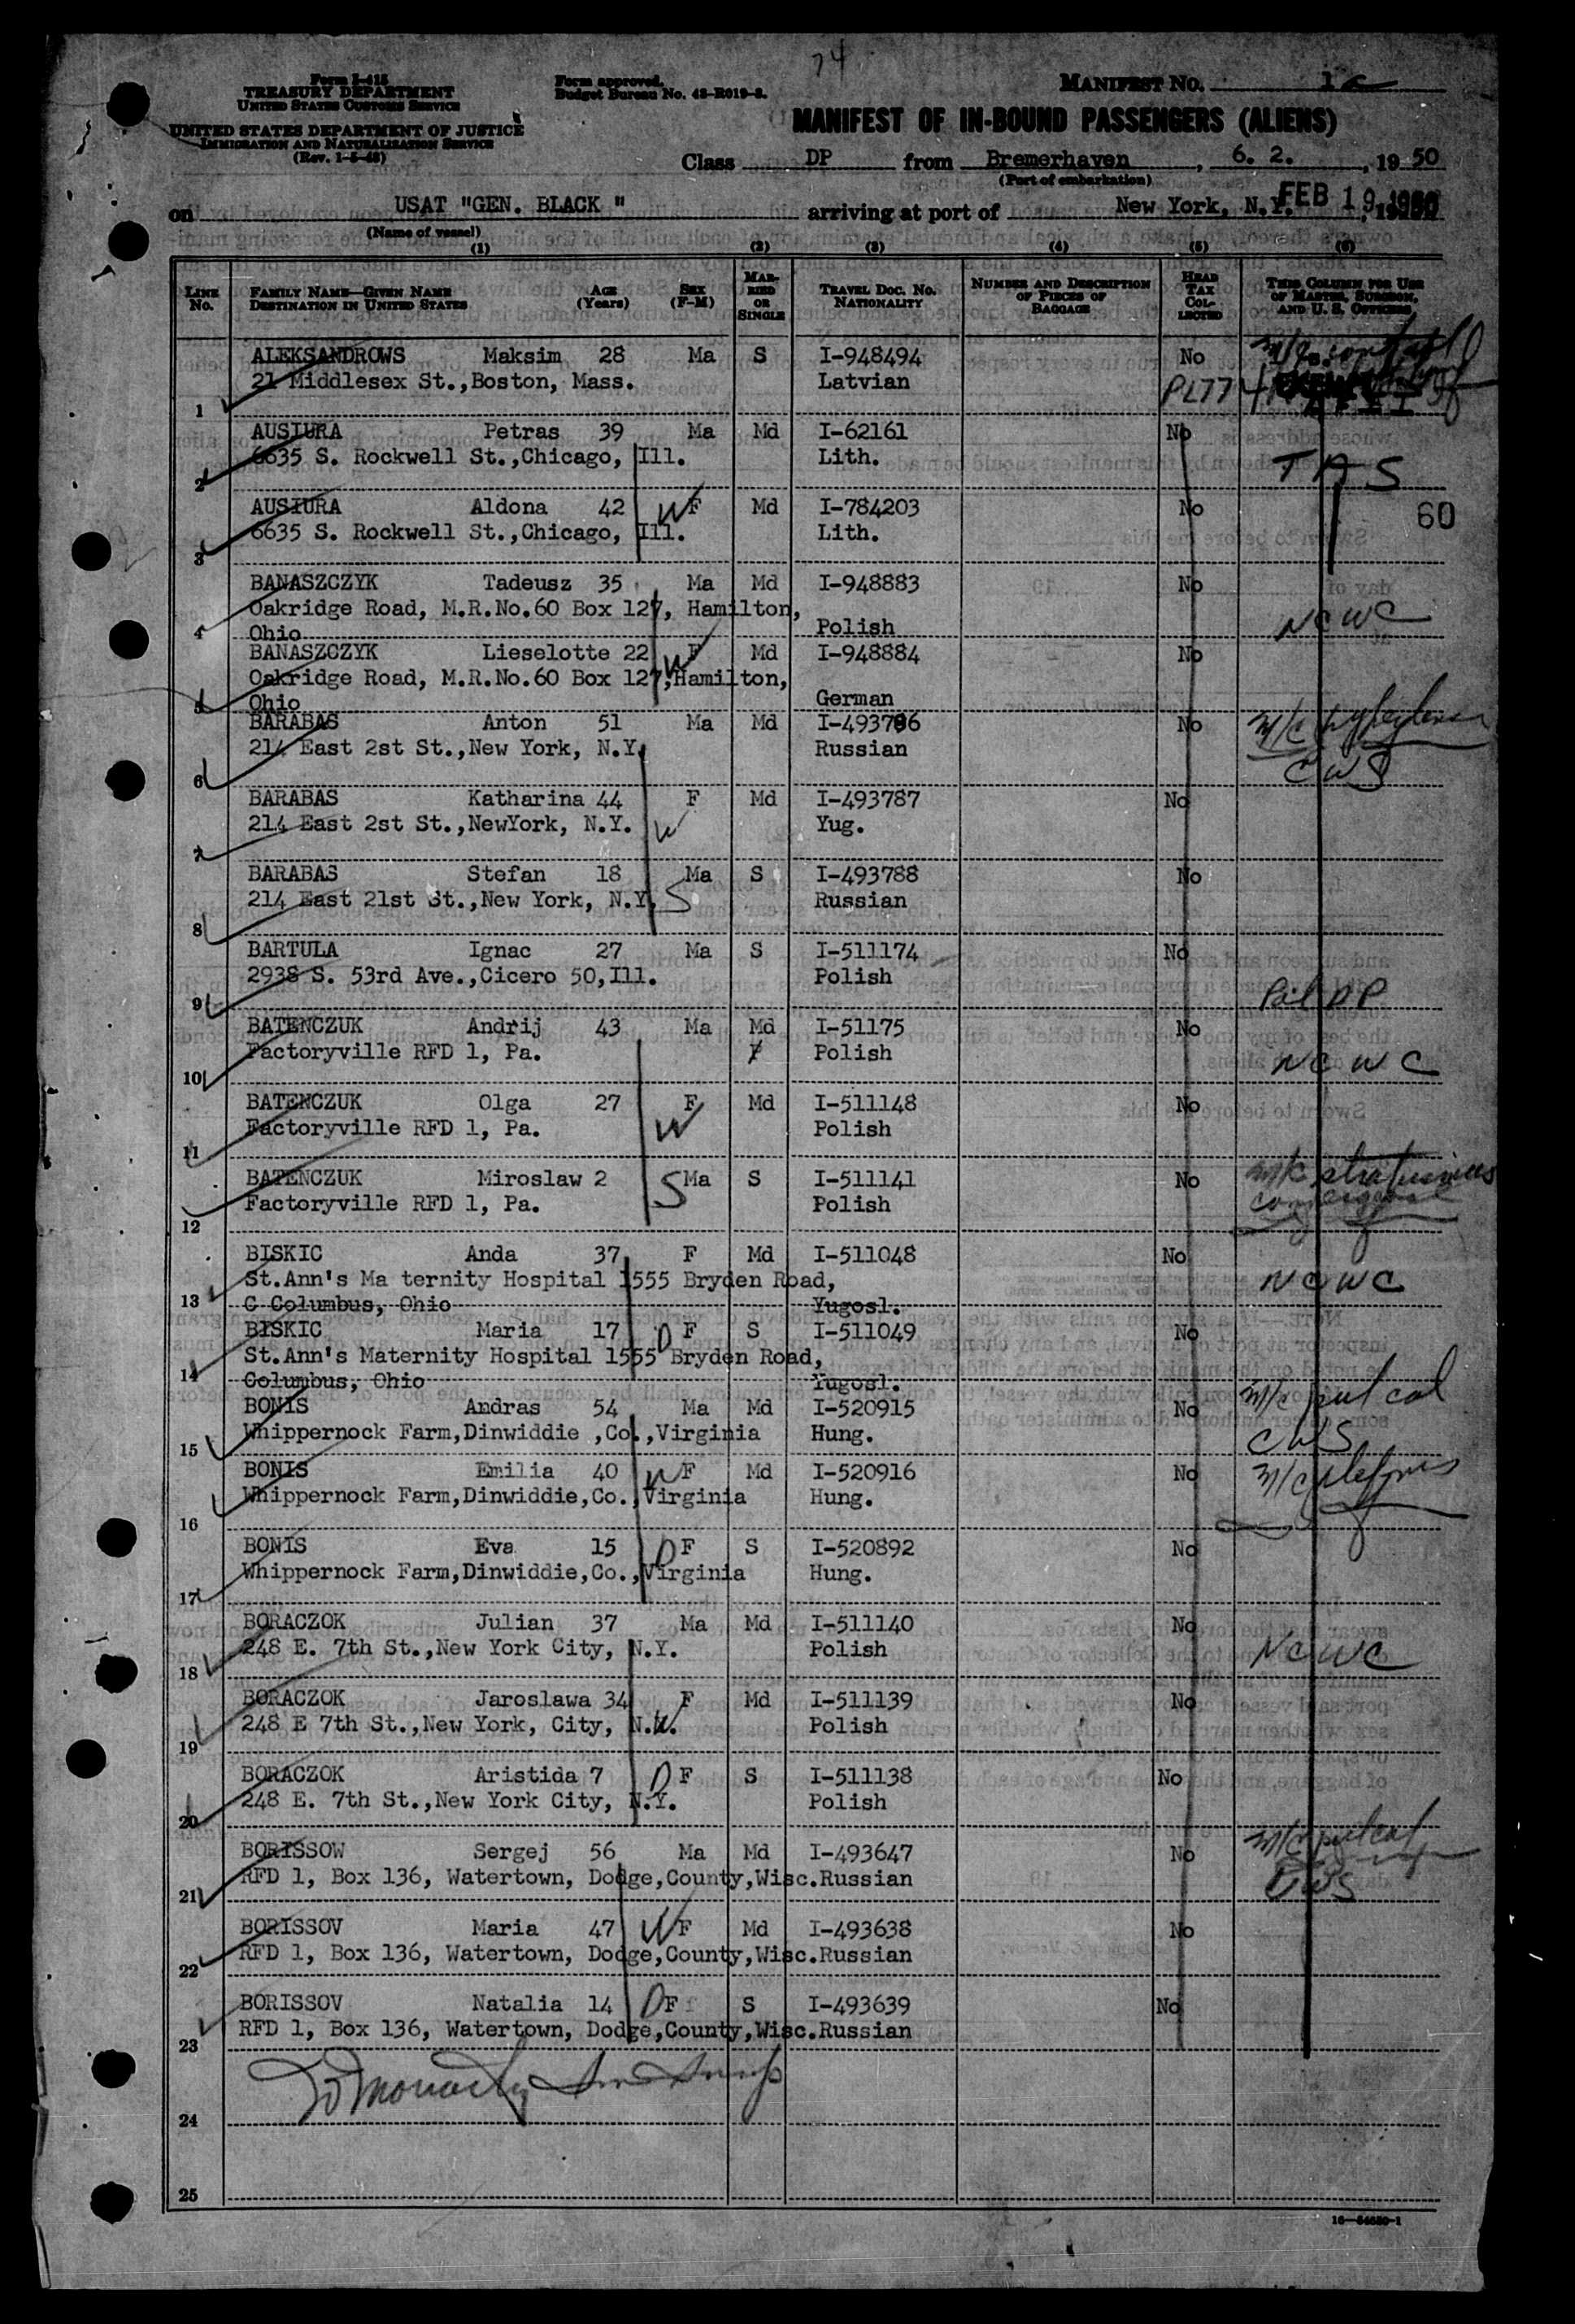 74
Form I-415
TREASURY DEPARTMENT
UNITED STATES CUSTOMS SERVICE
UNITED STATES DEPARTMENT OF JUSTICE
IMMIGRATION AND NATURALIZATION SERVICE
(Rev. 1-5-48)
Form approved.
Budget Bureau No. 43-R019-3.
MANIFEST NO. 1
MANIFEST OF IN-BOUND PASSENGERS (ALIENS)
Class DP from Bremerhaven, 6. 2., 1950
(Port of embarkation)
on USAT "GEN. BLACK " arriving at port of New York, N.Y. FEB 19 1950
(Name of vessel)
(1) (2) (3) (4) (5) (6)
LINE NO. FAMILY NAME—GIVEN NAME DESTINATION IN UNITED STATES AGE (Years) SEX (F-M) MARRIED OR SINGLE TRAVEL DOC. NO. NATIONALITY NUMBER AND DESCRIPTION OF PIECES OF BAGGAGE HEAD TAX COLLECTED THIS COLUMN FOR USE OF MASTER, SURGEON, AND U. S. OFFICERS
ALEKSANDROWS Maksim 28 Ma S I-948494 No
21 Middlesex St.,Boston, Mass. Latvian PL774
1
AUSIURA Petras 39 Ma Md I-62161 No
6635 S. Rockwell St.,Chicago, Ill. Lith. T A S
2
AUSIURA Aldona 42 W F Md I-784203 No 60
6635 S. Rockwell St.,Chicago, Ill. Lith.
3
BANASZCZYK Tadeusz 35 Ma Md I-948883 No
Oakridge Road, M.R.No.60 Box 127, Hamilton, NCWC
4 Ohio Polish
BANASZCZYK Lieselotte 22 W F Md I-948884 No
Oakridge Road, M.R.No.60 Box 127,Hamilton,
5 Ohio German
BARABAS Anton 51 Ma Md I-493786 No m/c
214 East 2st St.,New York, N.Y. Russian CWS
6
BARABAS Katharina 44 F Md I-493787 No
214 East 2st St.,NewYork, N.Y. W Yug.
7
BARABAS Stefan 18 Ma S I-493788 No
214 East 21st St.,New York, N.Y. S Russian
8
BARTULA Ignac 27 Ma S I-511174 No
2938 S. 53rd Ave.,Cicero 50,Ill. Polish Pol DP
9
BATENCZUK Andrij 43 Ma Md I-51175 No
Factoryville RFD 1, Pa. Polish NCWC
10
BATENCZUK Olga 27 F Md I-511148 No
Factoryville RFD 1, Pa. W Polish
11
BATENCZUK Miroslaw 2 S Ma S I-511141 No m/c
Factoryville RFD 1, Pa. Polish
12
BISKIC Anda 37 F Md I-511048 No
St.Ann's Ma ternity Hospital 1555 Bryden Road, NCWC
13 C Columbus, Ohio Yugosl.
BISKIC Maria 17 D F S I-511049 No
St.Ann's Maternity Hospital 1555 Bryden Road,
14 Columbus, Ohio Yugosl.
BONIS Andras 54 Ma Md I-520915 No m/c pul cal
Whippernock Farm,Dinwiddie ,Co.,Virginia Hung. CWS
15
BONIS Emilia 40 W F Md I-520916 No m/c
Whippernock Farm,Dinwiddie,Co.,Virginia Hung.
16
BONIS Eva 15 D F S I-520892 No
Whippernock Farm,Dinwiddie,Co.,Virginia Hung.
17
BORACZOK Julian 37 Ma Md I-511140 No
248 E. 7th St.,New York City, N.Y. Polish NCWC
18
BORACZOK Jaroslawa 34 F Md I-511139 No
248 E 7th St.,New York, City, N.W. Polish
19
BORACZOK Aristida 7 D F S I-511138 No
248 E. 7th St.,New York City, N.Y. Polish
20
BORISSOW Sergej 56 Ma Md I-493647 No m/c pul cal
RFD 1, Box 136, Watertown, Dodge,County,Wisc.Russian CWS
21
BORISSOV Maria 47 W F Md I-493638 No
RFD 1, Box 136, Watertown, Dodge,County,Wisc.Russian
22
BORISSOV Natalia 14 D F S I-493639 No
RFD 1, Box 136, Watertown, Dodge,County,Wisc.Russian
23
24
25
16—54680-1